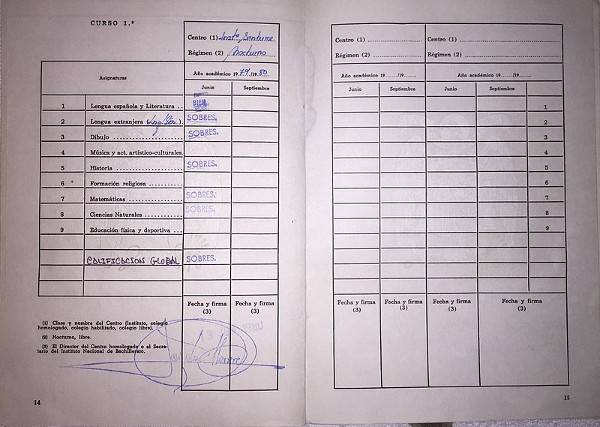 CURSO 1.º
Centro (1)
Régimen (2) Nocturno
Asignaturas
Año académico 1979/1980
Junio Septiembre
1 Lengua española y Literatura .. BIEN
2 Lengua extranjera ( ). SOBRES.
3 Dibujo SOBRES.
4 Música y act. artístico-culturales
5 Historia SOBRES.
6 * Formación religiosa
7 Matemáticas SOBRES.
8 Ciencias Naturales SOBRES.
9 Educación física y deportiva
CALIFICACION GLOBAL SOBRES.
Fecha y firma (3) Fecha y firma (3)
(1) Clase y nombre del Centro (Instituto, colegio
homologado, colegio habilitado, colegio libre).
(2) Nocturno, libre.
(3) El Director del Centro homologado o el Secre-
tario del Instituto Nacional de Bachillerato.
14
Centro (1) Centro (1)
Régimen (2) Régimen (2)
Año académico 19 /19 Año académico 19 /19
Junio Septiembre Junio Septiembre
1
2
3
4
5
6
7
8
9
Fecha y firma (3) Fecha y firma (3) Fecha y firma (3) Fecha y firma (3)
15